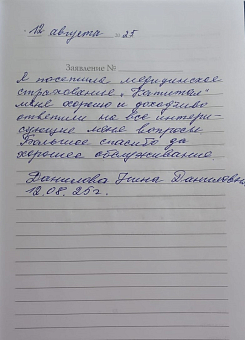 12 августа 25
Заявление №
Я посетила медицинское
страхование "Капитал"
мне хорошо и доходчиво
ответили на все интери-
сующие меня вопросы
Большое спасибо за
хорошее обслуживание.
Данилова Нина Даниловна
12.08.25г.